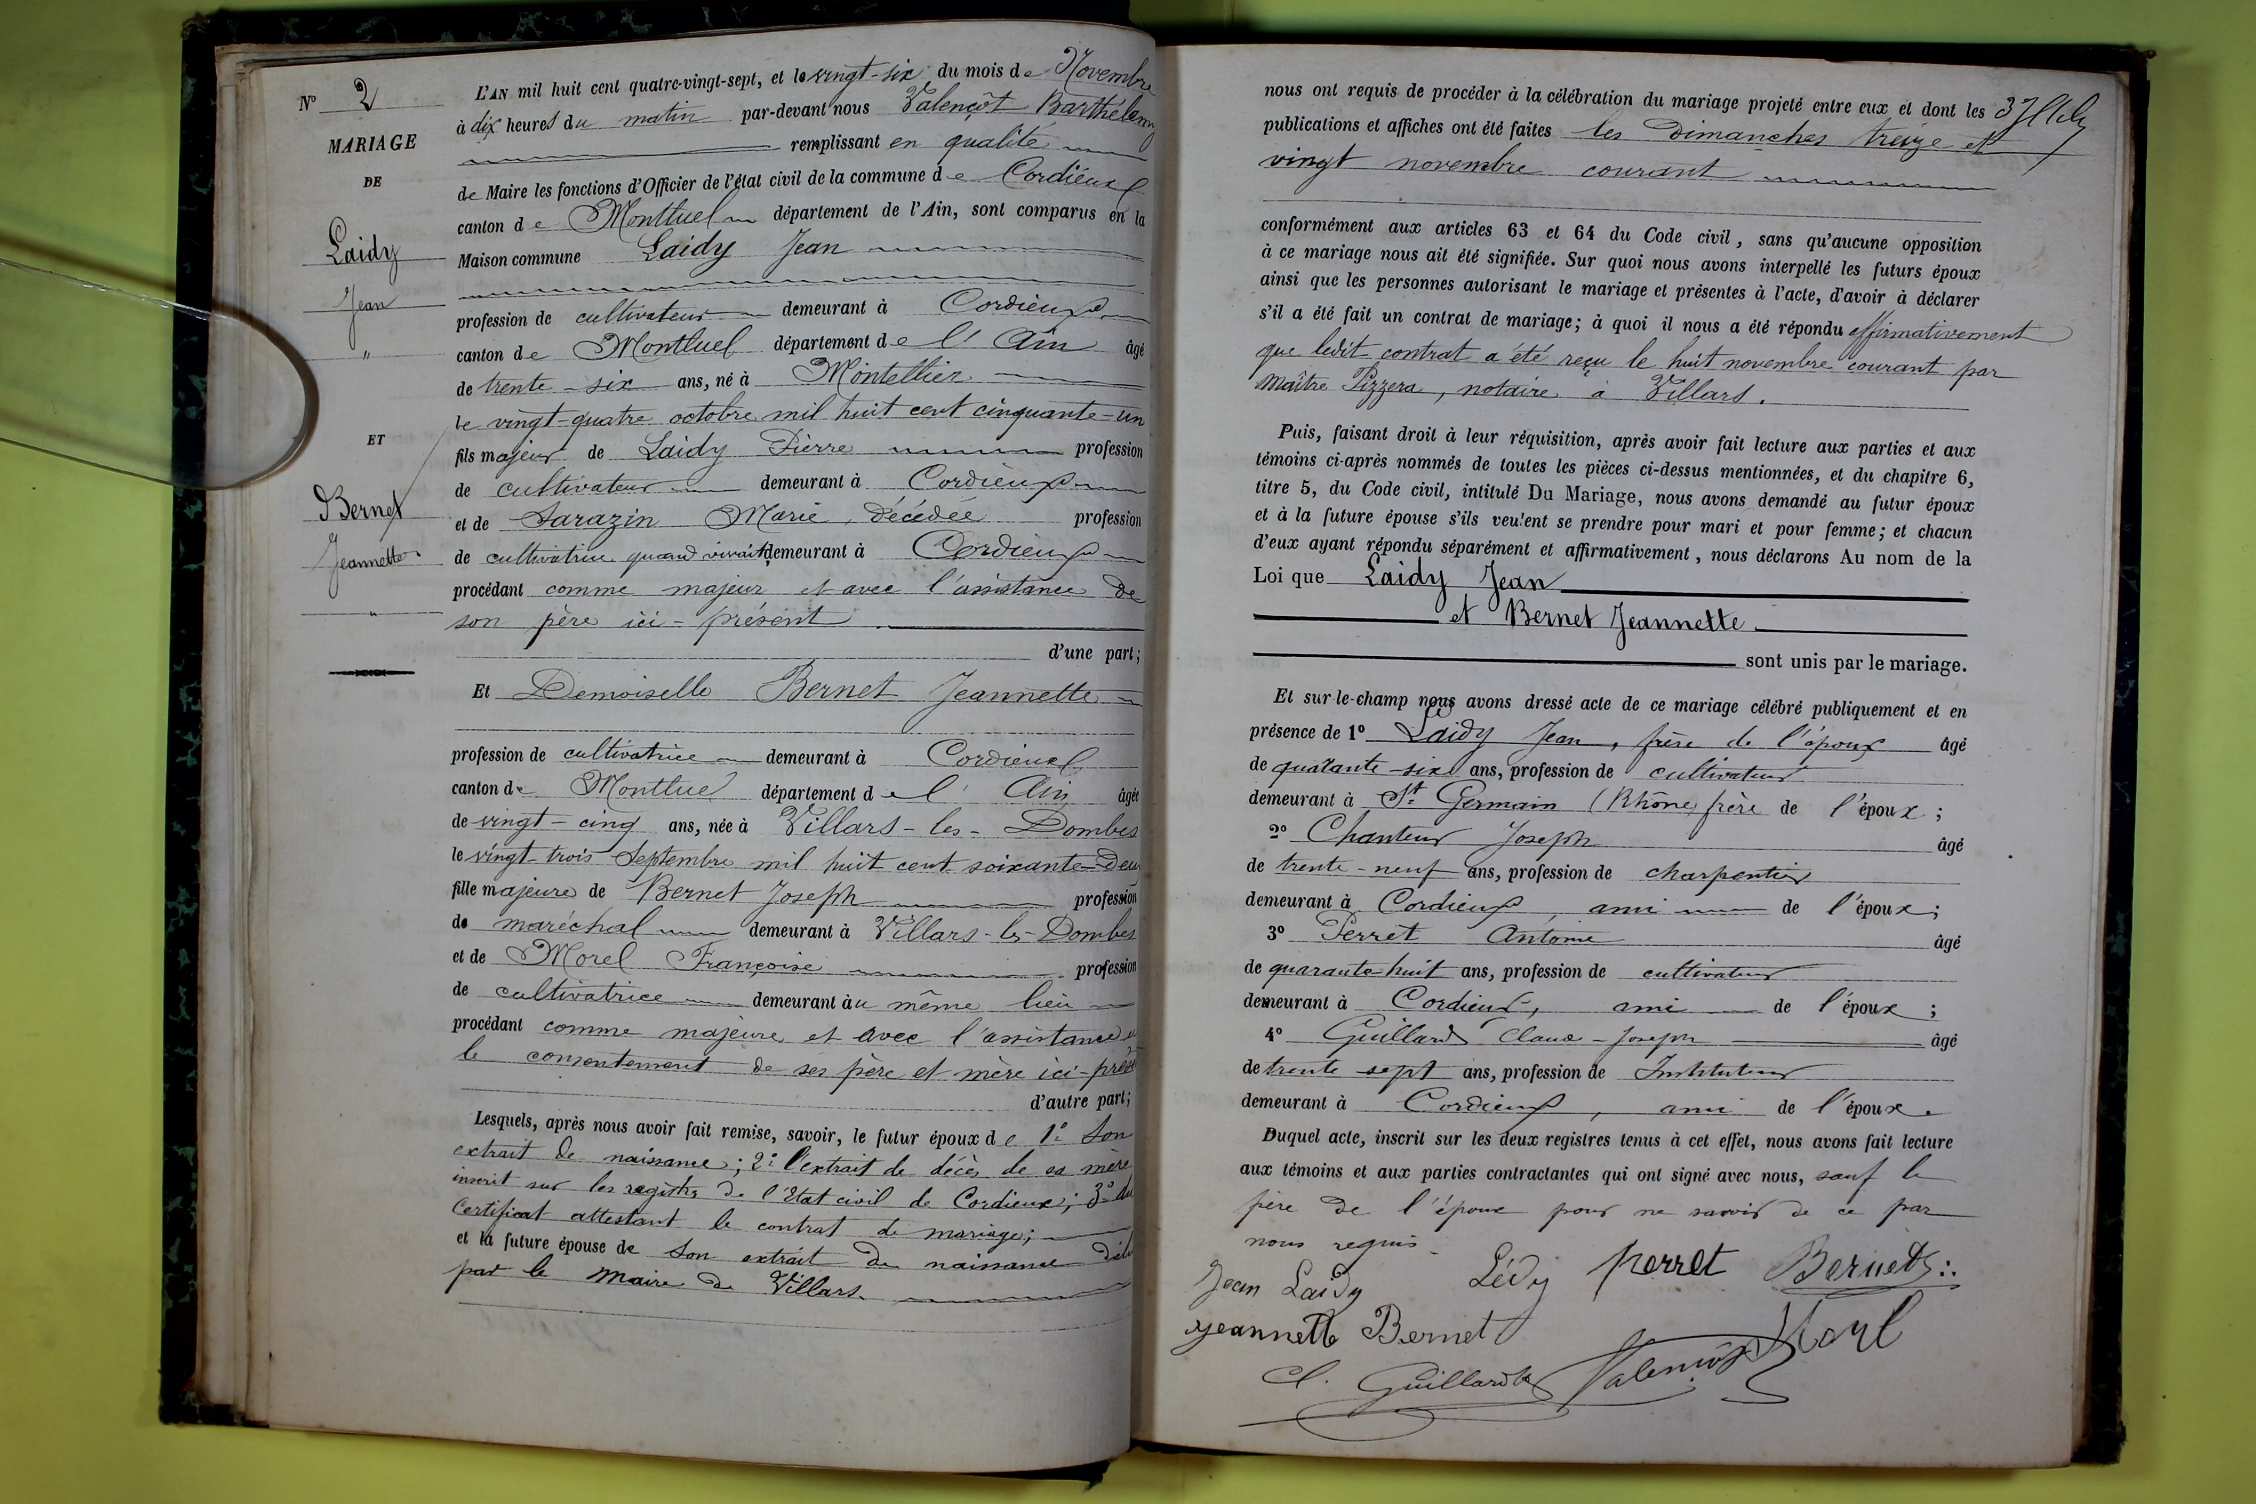 N° 2
MARIAGE
DE
Laidy
Jean
"
ET
Bernet
Jeannette
"
L'AN mil huit cent quatre-vingt-sept, et le vingt-six du mois de Novembre
à dix heures du matin par-devant nous Valençôt Barthélemy
remplissant en qualité
de Maire les fonctions d'Officier de l'état civil de la commune de Cordieux
canton de Montluel département de l'Ain, sont comparus en la
Maison commune Laidy Jean
profession de cultivateur demeurant à Cordieux
canton de Montluel département de l'Ain âgé
de trente-six ans, né à Montellier
le vingt-quatre octobre mil huit cent cinquante-un
fils majeur de Laidy Pierre profession
de cultivateur demeurant à Cordieux
et de Sarazin Marie, décédée profession
de cultivatrice quand vivait, demeurant à Cordieux
procédant comme majeur et avec l'assistance de
son père ici-présent
d'une part;
Et Demoiselle Bernet Jeannette
profession de cultivatrice demeurant à Cordieux
canton de Montluel département de l'Ain âgée
de vingt-cinq ans, née à Villars-les-Dombes
le vingt-trois Septembre mil huit cent soixante-deux
fille majeure de Bernet Joseph profession
de maréchal demeurant à Villars-les-Dombes
et de Morel Françoise profession
de cultivatrice demeurant au même lieu
procédant comme majeure et avec l'assistance et
le consentement de ses père et mère ici-prés
d'autre part;
Lesquels, après nous avoir fait remise, savoir, le futur époux de 1° Son
extrait de naissance; 2° l'extrait de décès de sa mère
inscrit sur les registres de l'Etat civil de Cordieux; 3° du
Certificat attestant le contrat de mariage;
et la future épouse de Son extrait de naissance déli
par le Maire de Villars.
nous ont requis de procéder à la célébration du mariage projeté entre eux et dont les
publications et affiches ont été faites les Dimanches treize et
vingt novembre courant
conformément aux articles 63 et 64 du Code civil, sans qu'aucune opposition
à ce mariage nous ait été signifiée. Sur quoi nous avons interpellé les futurs époux
ainsi que les personnes autorisant le mariage et présentes à l'acte, d'avoir à déclarer
s'il a été fait un contrat de mariage; à quoi il nous a été répondu affirmativement
que ledit contrat a été reçu le huit novembre courant par
Maître Pizzera, notaire à Villars.
Puis, faisant droit à leur réquisition, après avoir fait lecture aux parties et aux
témoins ci-après nommés de toutes les pièces ci-dessus mentionnées, et du chapitre 6,
titre 5, du Code civil, intitulé Du Mariage, nous avons demandé au futur époux
et à la future épouse s'ils veulent se prendre pour mari et pour femme; et chacun
d'eux ayant répondu séparément et affirmativement, nous déclarons Au nom de la
Loi que Laidy Jean
et Bernet Jeannette
sont unis par le mariage.
Et sur-le-champ nous avons dressé acte de ce mariage célébré publiquement et en
présence de 1° Laidy Jean, frère de l'époux âgé
de quarante-six ans, profession de cultivateur
demeurant à St Germain (Rhône) frère de l'époux;
2° Chanteur Joseph âgé
de trente-neuf ans, profession de charpentier
demeurant à Cordieux, ami de l'époux;
3° Perret Antoine âgé
de quarante-huit ans, profession de cultivateur
demeurant à Cordieux, ami de l'époux;
4° Guillard Claude-Joseph âgé
de trente sept ans, profession de Instituteur
demeurant à Cordieux, ami de l'époux.
Duquel acte, inscrit sur les deux registres tenus à cet effet, nous avons fait lecture
aux témoins et aux parties contractantes qui ont signé avec nous, sauf le
père de l'époux pour ne savoir de ce par
nous requis.
Jean Laidy Lédy Perret Bernet
Jeannette Bernet Morel
Cl. Guillard Valençôt